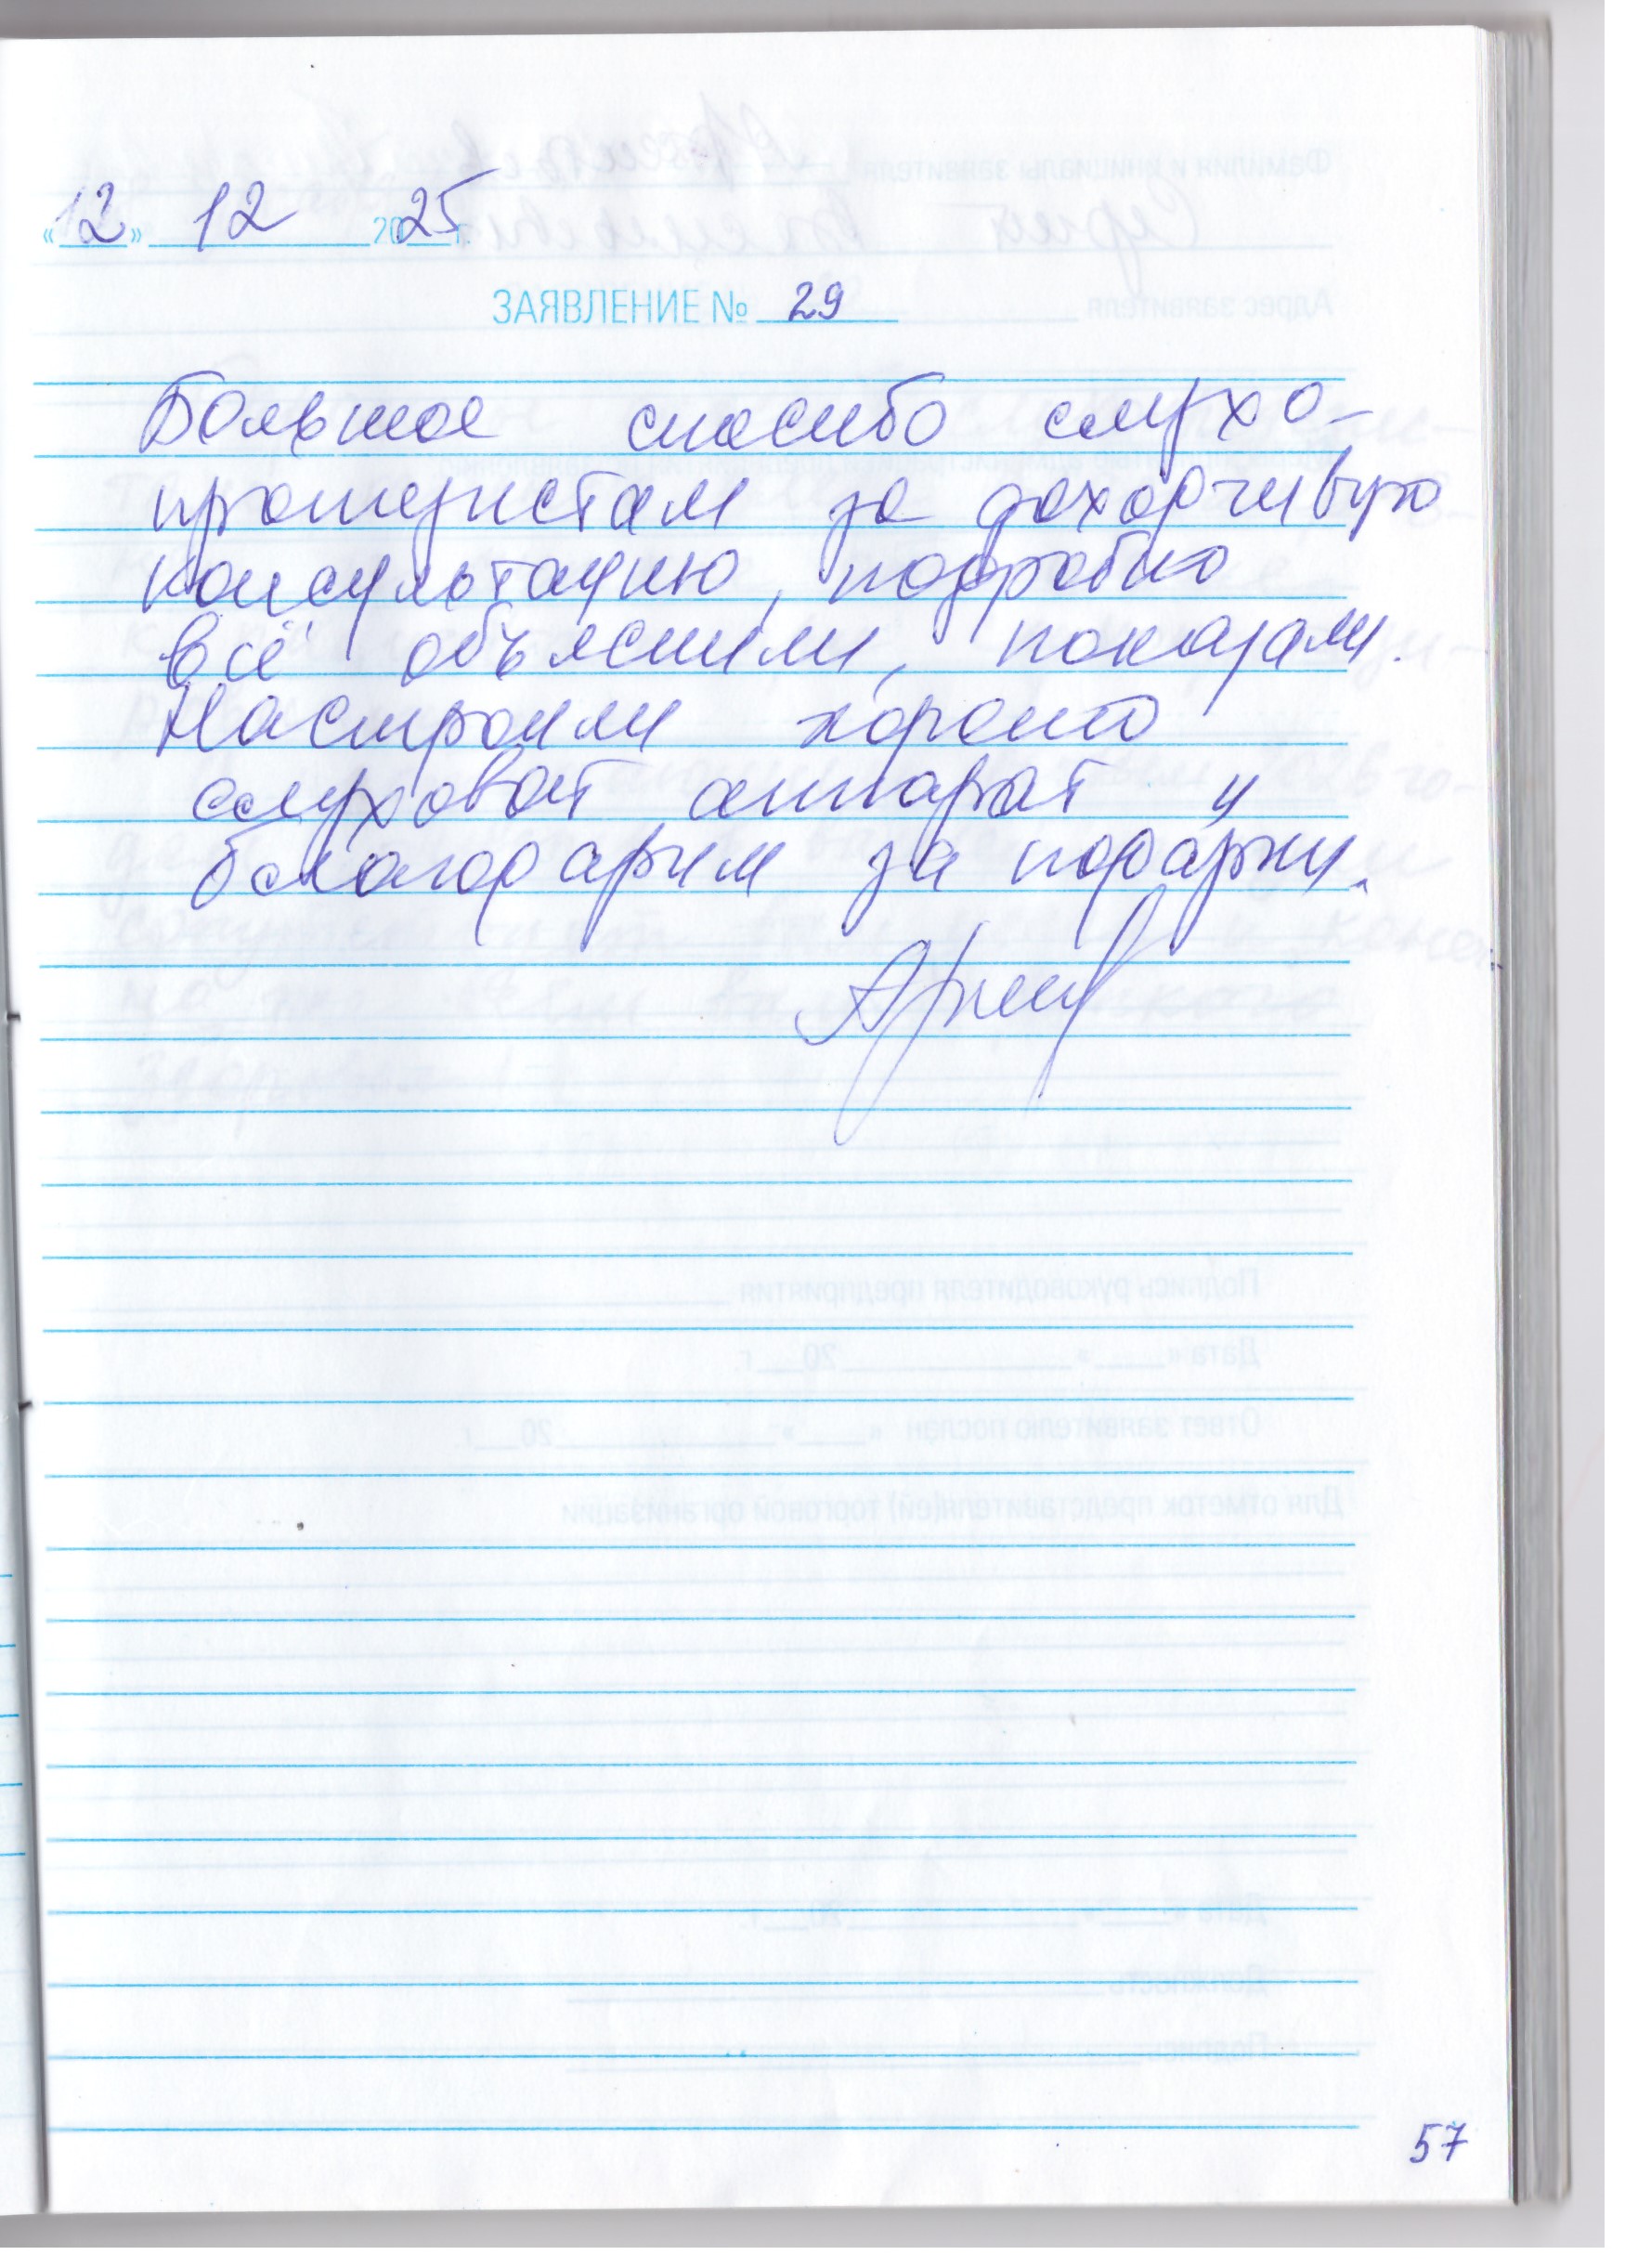 «12» 12 2025 г.
ЗАЯВЛЕНИЕ № 29
Большое спасибо слухо-
протезистам за доходчивую
консультацию, подробно
всё объяснили, показали.
Настроили хорошо
слуховой аппарат и
благодарим за подарки.
57